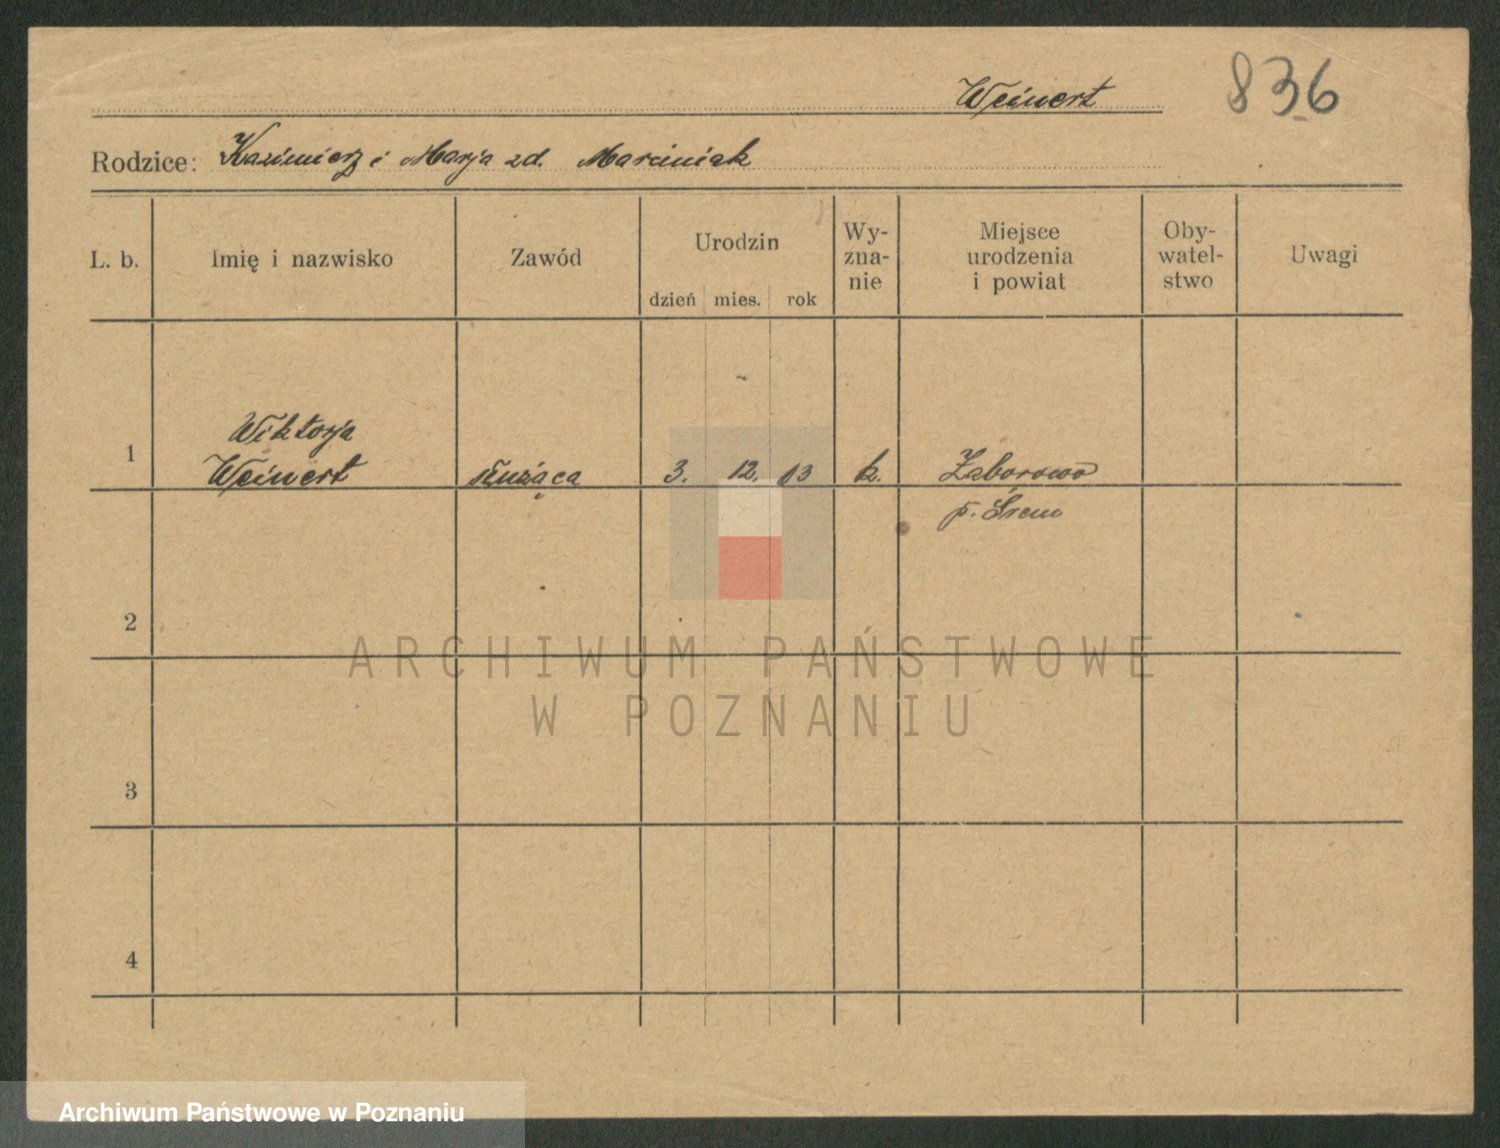 Weinert
836
Rodzice: Kazimierz i Marja zd. Marciniak
L. b.
Imię i nazwisko
Zawód
Urodzin
dzień mies. rok
Wy-
zna-
nie
Miejsce
urodzenia
i powiat
Oby-
watel-
stwo
Uwagi
1
Wiktorja
Weinert
służąca
3. 12. 13
k.
Zaborowo
p. Śrem
2
3
4
ARCHIWUM PAŃSTWOWE
W POZNANIU
Archiwum Państwowe w Poznaniu